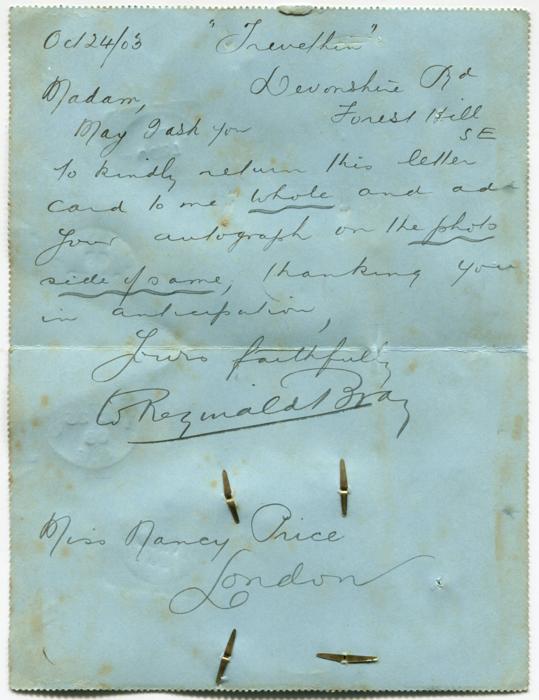 Oct 24/03 "Trevethin"
Devonshire Rd
Madam,
Forest Hill
May I ask you
SE
to kindly return this letter
card to me whole and ad
your autograph on the photo
side of same, thanking you
in anticipation,
Yours faithfully
W Reginald Bray
Miss Nancy Price
London